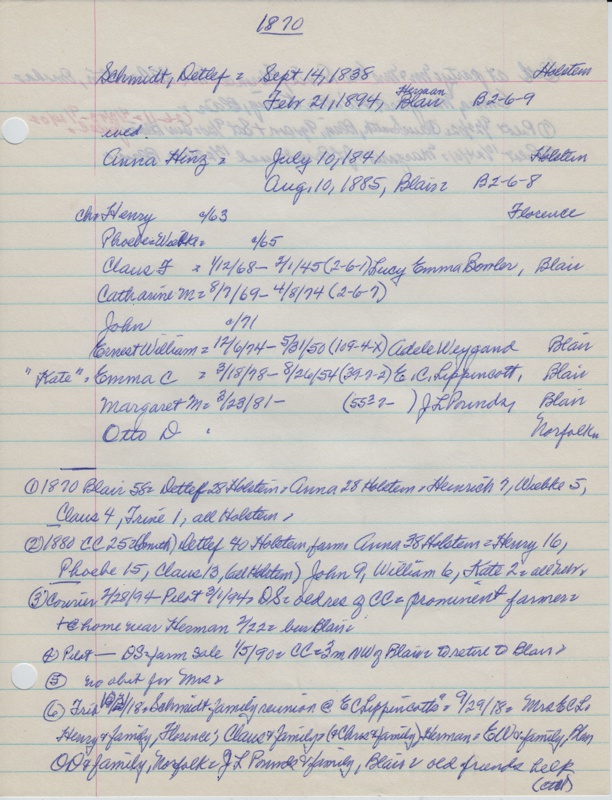 1870
Schmidt, Detlef = Sept 14, 1838 Holstein
Feb 21, 1894, Herman Blair B2-6-9
wed.
Anna Hinz = July 10, 1841 Holstein
Aug. 10, 1885, Blair= B2-6-8
ch= Henry c/63 Florence
Phoebe=Wiebke= c/65
Claus F = 1/12/68- 2/1/45 (2-6-1) Lucy Emma Bowler, Blair
Catharine M = 8/7/69- 4/8/74 (2-6-7)
John c/71
Ernest William = 12/6/74- 5/31/50 (109-4-X) Adele Weygand Blair
"Kate" = Emma C = 3/18/78- 8/26/54 (39-7-2) E.C. Lippincott, Blair
Margaret M = 3/23/81- (552-7- ) J L Pounds, Blair
Otto D Norfolk
① 1870 Blair 58= Detlef 28 Holstein= Anna 28 Holstein= Heinrich 7, Wiebke 5,
Claus 4, Trine 1, all Holstein=
② 1880 CC 25= (Smith) Detlef 40 Holstein, farm= Anna 38 Holstein= Henry 16,
Phoebe 15, Claus 13, (all Holstein) John 9, William 6, Kate 2= all Nebr=
③ Courier 2/28/94 Pilot 3/1/94= DS= old res of CC= prominent farmer=
+@home near Herman 2/22= bur Blair=
④ Pilot — DS=farm sale 1/5/90= CC= 3m NW of Blair= to retire to Blair=
⑤ no obit for Mrs=
⑥ Trib 10/2/18= Schmidt family reunion @ EC Lippincotts= 9/29/18= Mrs ECL=
Henry & family, Florence; Claus & family= (& Clara & family) Herman= EW & family, Blair
OD & family, Norfolk= J L Pounds & family, Blair= old friends help